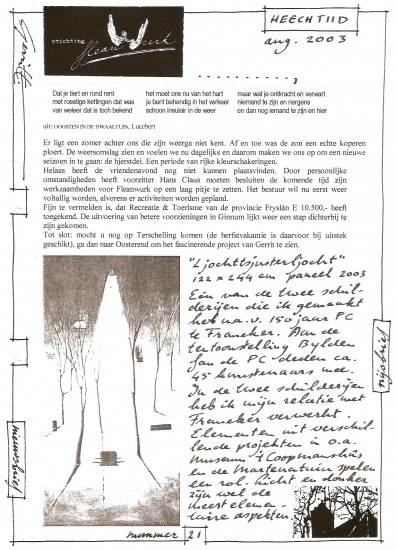 HEECHTIID
aug. 2003
stichting
fleanwurk
Dat je tiert en rond rent
met roestige kettingen dat was
van weleer dat is toch bekend
het moet ons nu van het hart
je bent behendig in het verkeer
schoon insulair in de weer
maar wat je ontkracht en verwart
niemand te zijn en nergens
en dan nog iemand te zijn en hier
uit: OOGSTEN IN DE DWAALTUIN, Lucebert
Er ligt een zomer achter ons die zijn weerga niet kent. Af en toe was de zon een echte koperen
ploert. De weersomslag zien en voelen we nu dagelijks en daarom maken we ons op om een nieuwe
seizoen in te gaan: de hjerstdei. Een periode van rijke kleurschakeringen.
Helaas heeft de vriendenavond nog niet kunnen plaatsvinden. Door persoonlijke
omstandigheden heeft voorzitter Hans Claus moeten besluiten de komende tijd zijn
werkzaamheden voor Fleanwurk op een laag pitje te zetten. Het bestuur wil nu eerst weer
voltallig worden, alvorens er activiteiten worden gepland.
Fijn te vermelden is, dat Recreatie & Toerisme van de provincie Fryslân E 10.500,- heeft
toegekend. De uitvoering van betere voorzieningen in Ginnum lijkt weer een stap dichterbij te
zijn gekomen.
Tot slot: mocht u nog op Terschelling komen (de herfstvakantie is daarvoor bij uitstek
geschikt), ga dan naar Oosterend om het fascinerende project van Gerrit te zien.
"Ljochtsjusterljocht"
122 x 244 cm paneel 2003
Eén van de twee schil-
derijen die ik gemaakt
heb n.a.v. 150 jaar PC
te Franeker. Aan de
tentoonstelling Bylden
fan de PC deden ca.
45 kunstenaars mee.
In de twee schilderijen
heb ik mijn relatie met
Franeker verwerkt.
Elementen uit verschil-
lende projekten in o.a.
museum 't Coopmanshûs
en de Martenatuin spelen
een rol. Licht en donker
zijn wel de
meest elemen-
taire aspekten.
nijsbrief
nieuwsbrief
nummer 21